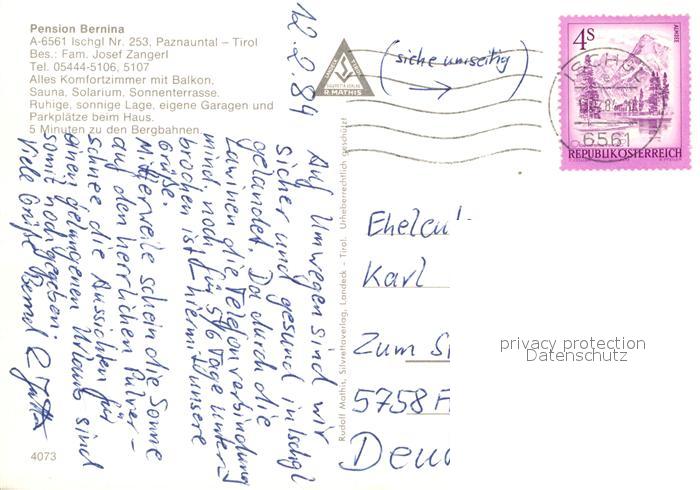 Pension Bernina
A-6561 Ischgl Nr. 253, Paznauntal – Tirol
Bes.: Fam. Josef Zangerl
Tel. 05444-5106, 5107
Alles Komfortzimmer mit Balkon,
Sauna, Solarium, Sonnenterrasse.
Ruhige, sonnige Lage, eigene Garagen und
Parkplätze beim Haus.
5 Minuten zu den Bergbahnen.
12.2.84
Auf Umwegen sind wir
sicher und gesund in Ischgl
gelandet. Da durch die
Lawinen die Telefonverbindung
mind. noch für 5/6 Tage unter-
brochen ist – hiermit unsere
Grüße.
Mittlerweile schein die Sonne
auf den herrlichen Pulver-
schnee die Aussichten für
einen gelungenen Urlaub sind
somit noch gegeben.
Viele Grüße Bernd &
4073
Rudolf Mathis, Silvrettaverlag, Landeck - Tirol. Urheberrechtlich geschützt
R. MATHIS
(siehe umseitig)
4S
ALMSEE
ISCHGL
6561
REPUBLIK ÖSTERREICH
Eheleu
Karl
Zum
5758 F
Deu
privacy protection
Datenschutz